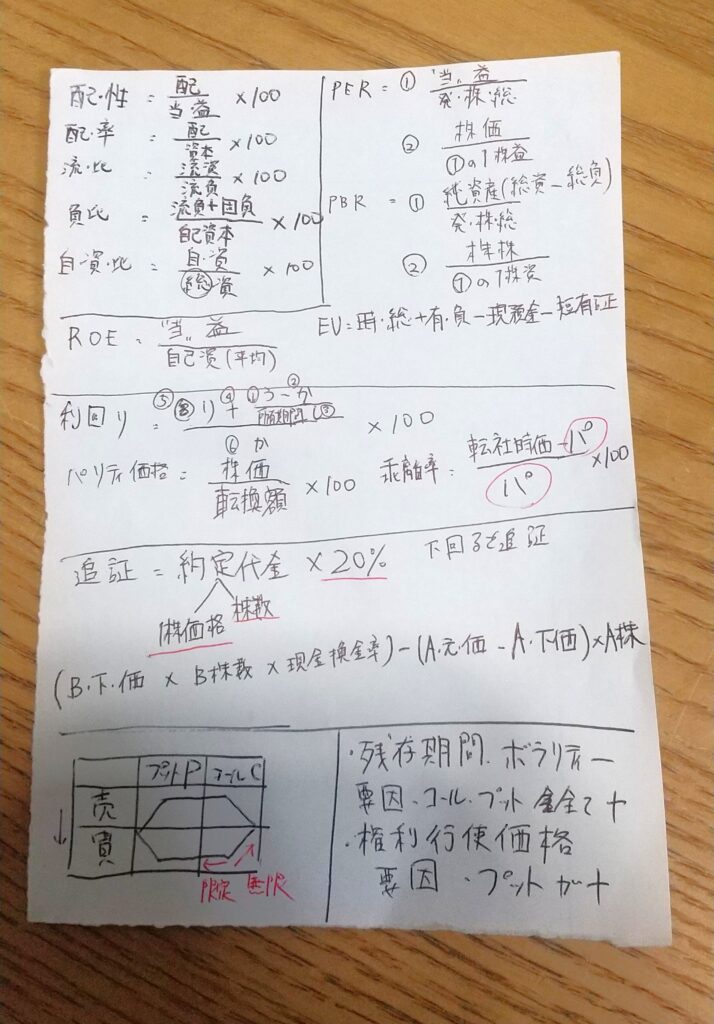 配・性 = 配/当・益 ×100
配・率 = 配/資本 ×100
流・比 = 流資/流負 ×100
負比 = 流負+固負/自己資本 ×100
自・資・比 = 自・資/総資 ×100
PER = ① 当〃益/発・株・総
② 株価/①の1株益
PBR = ① 純資産(総資-総負)/発・株・総
② 株株/①の1株資
ROE = 当〃益/自己資(平均)
EV=時・総+有・負-現預金-短有証
利回り = ⑤ り + ④ ①う-②か/期間 ×100
⑥ か
パリティ価格 = 株価/転換額 ×100
乖離率 = 転社時価-パ/パ ×100
追証 = 約定代金 × 20% 下回ると追証
1株価格 株数
(B・下・価 × B株数 × 現金換金率) - (A・元・価 - A・下・価)×A株
プットP コールC
売
買
限定 無限
・残存期間.ボラリティー
要因・コール.プット全て+
・権利行使価格
要因・プットが+